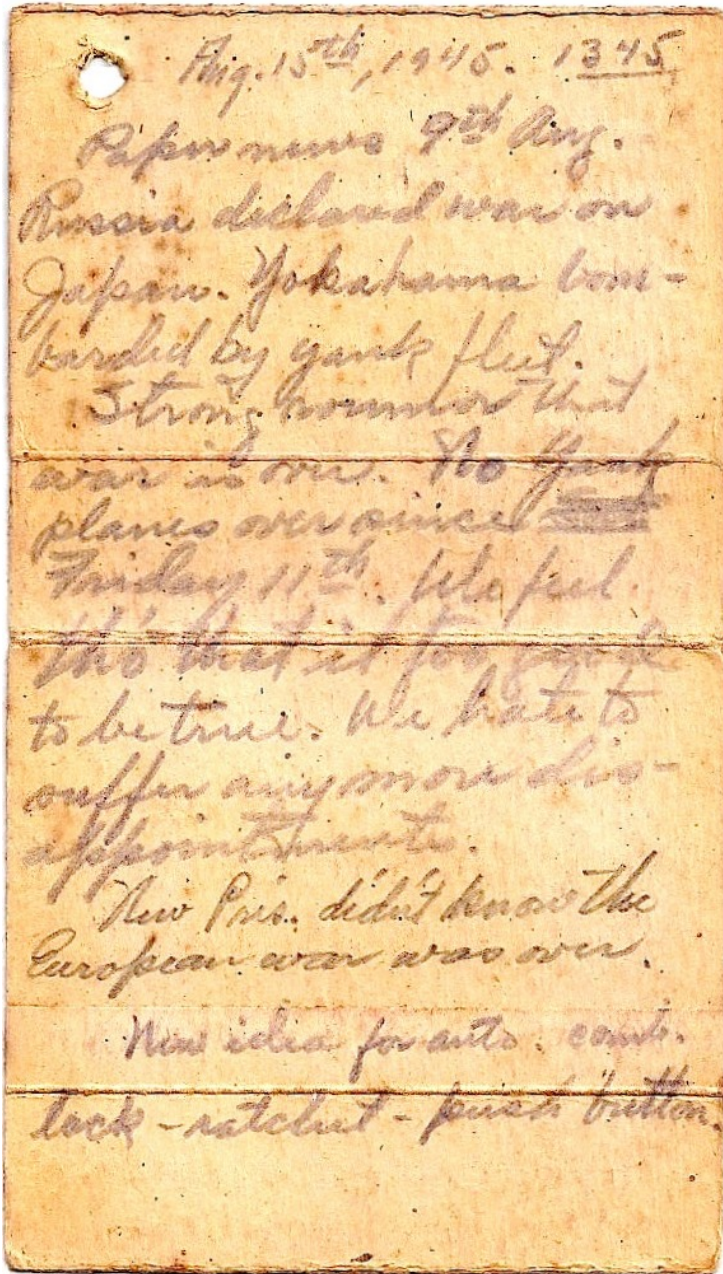 Aug. 15th, 1945. 1345
Paper news 9th Aug.
Russia declared war on
Japan. Yokahama bom-
barded by yank fleet.
Strong roumor that
war is over. No Yank
planes over since
Friday 11th. We feel
tho that it too good
to be true. We hate to
suffer any more dis-
appointments.
New Pris. didn't know the
European war was over.
New idea for auto. comb.
lock - ratchet - push button.